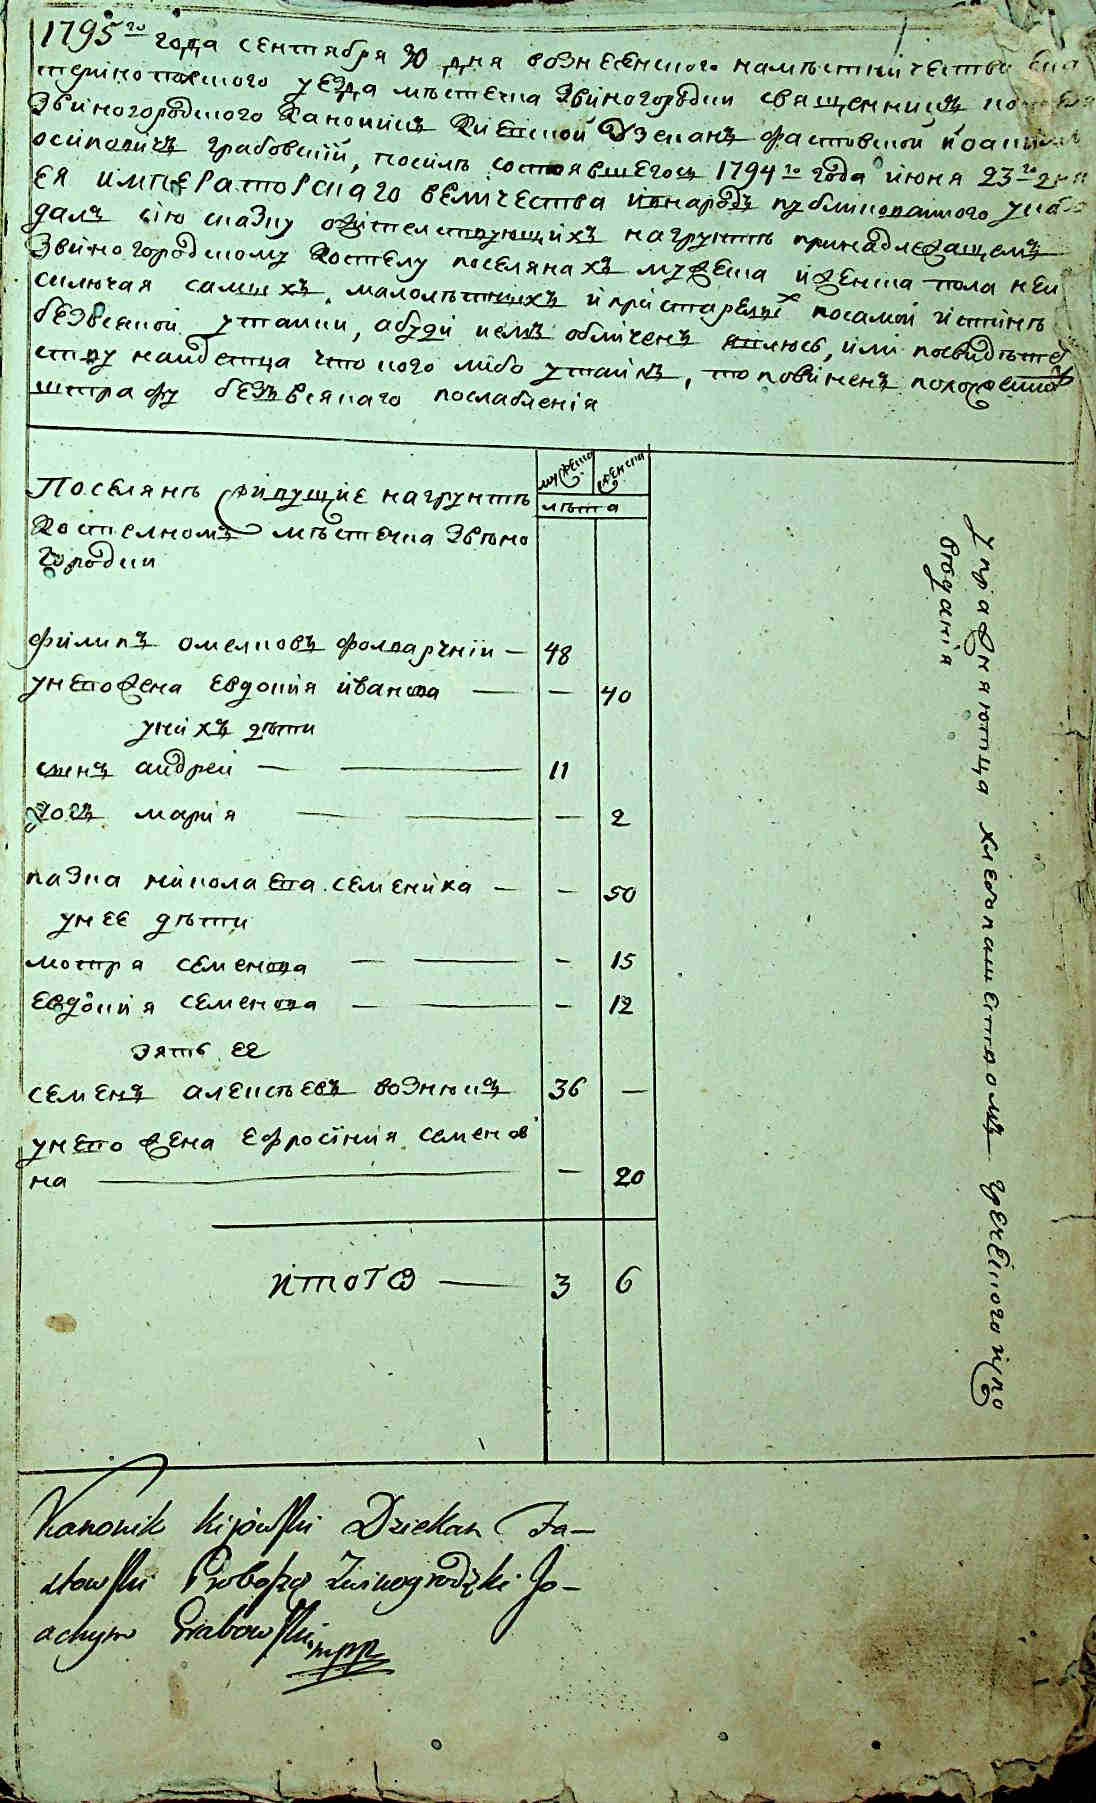 1795го года сентября 30 дня вознесенского наместничества ека
терiнополского уезда местечка Звiногородки священникъ
Звiногородского Каноникъ Киевской Дзеканъ фастовской Iоахимъ
осиповичъ грабовскiй, посиле состоявшегося 1794го года июня 23го дня
ея императорскаго величества iвнародъ публикованного указа
далъ сiю сказку обiтелствующихъ нагрунте принадлежащемъ
Звiногородскому Костелу поселянахъ мужеска иженска пола неи
сключая самыхъ малолетныхъ и престарелыхъ посамой iстинне
безвсякой утайки, абуди чемъ облiченъ явлюсь, или посвидетел
ству найдетца что кого либо утаилъ, то повиненъ положенному
штрафу безъвсякаго послабленiя
мужеска женска
лета
Поселяне живущие нагрунте
Костелномъ местечка Звено
городки
филипъ омелковъ фолварчнiй — 48
унего жена Евдокiя iванова — — 40
унихъ дети
сынъ андрей — — 11
дочъ марiя — — — 2
пазка нiколаева семенiка — — 50
унее дети
мотря семенова — — — 15
Евдокiя семенова — — — 12
зять ее
семенъ алексеевъ вознюкъ 36 —
унего жена ефросiнiя семенов
на — — 20
итого — 3 6
упражняютца хлебопашествомъ греческого iспо
веданiя
Kanonik kijowski Dziekan Fa-
stowski Proboszcz Zwinogrodzki Jo-
achym Grabowski mpp